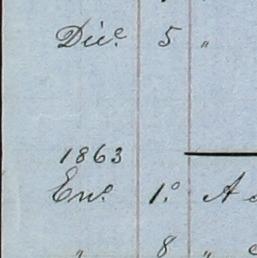 Dice. 5 "
1863
Eno. 1.º A
" 8 "